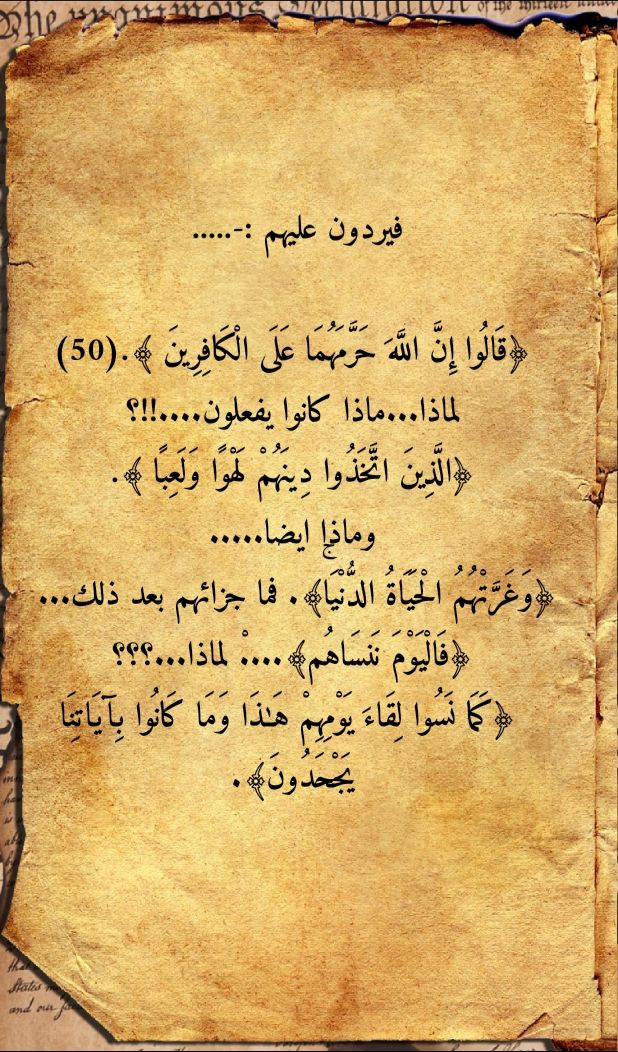 The unanimous Declaration of the thirteen united
فيردون عليهم :-.....
﴿قَالُوا إِنَّ اللَّهَ حَرَّمَهُمَا عَلَى الْكَافِرِينَ ﴾.(50)
لماذا...ماذا كانوا يفعلون....!!؟
﴿الَّذِينَ اتَّخَذُوا دِينَهُمْ لَهْوًا وَلَعِبًا ﴾.
وماذا ايضا.....
﴿وَغَرَّتْهُمُ الْحَيَاةُ الدُّنْيَاۚ﴾. فما جزائهم بعد ذلك...
﴿فَالْيَوْمَ نَنسَاهُم﴾....ْ لماذا...؟؟؟
﴿كَمَا نَسُوا لِقَاءَ يَوْمِهِمْ هَـٰذَا وَمَا كَانُوا بِآيَاتِنَا
يَجْحَدُونَ﴾.
that
States
and our